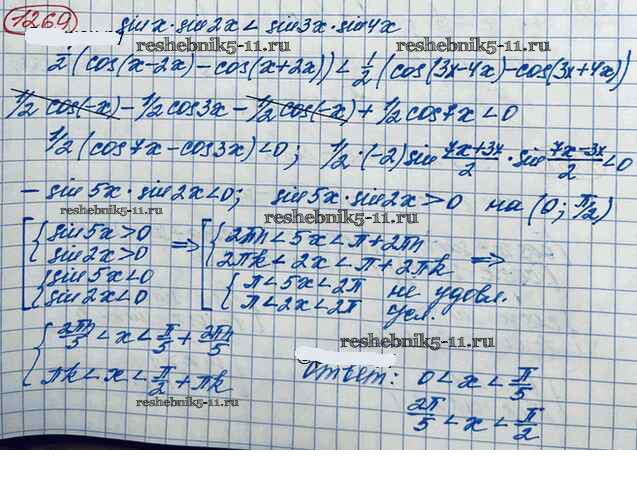 1269 sin x · sin 2x < sin 3x · sin 4x
reshebnik5-11.ru reshebnik5-11.ru
1/2 (cos(x-2x) - cos(x+2x)) < 1/2 (cos(3x-4x) - cos(3x+4x))
1/2 cos(-x) - 1/2 cos 3x - 1/2 cos(-x) + 1/2 cos 7x < 0
1/2 (cos 7x - cos 3x) < 0; 1/2 · (-2) sin (7x+3x)/2 · sin (7x-3x)/2 < 0
- sin 5x · sin 2x < 0; sin 5x · sin 2x > 0 на (0; π/2)
reshebnik5-11.ru reshebnik5-11.ru
[ { sin 5x > 0 => [ { 2πn < 5x < π + 2πn
sin 2x > 0 2πk < 2x < π + 2πk =>
{ sin 5x < 0 { π < 5x < 2π не удовл.
sin 2x < 0 π < 2x < 2π усл.
reshebnik5-11.ru
{ 2πn/5 < x < π/5 + 2πn/5
πk < x < π/2 + πk
reshebnik5-11.ru
Ответ: 0 < x < π/5
2π/5 < x < π/2